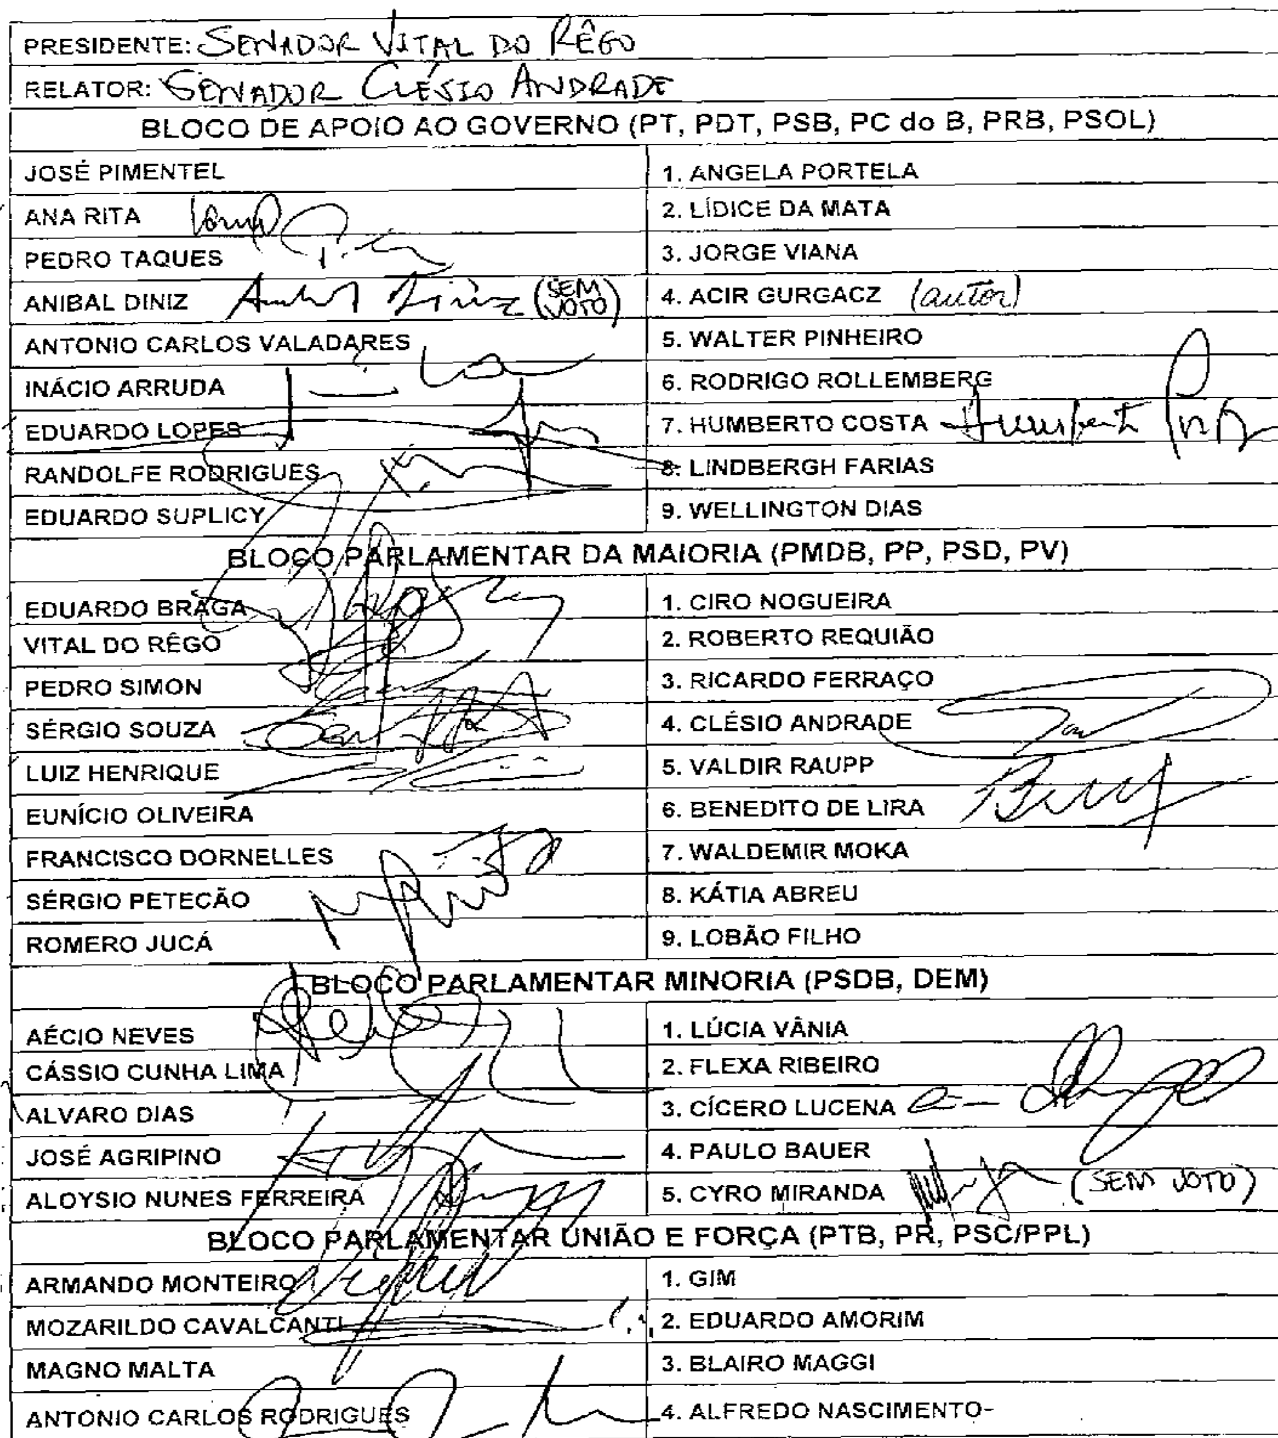 PRESIDENTE: SENADOR VITAL DO RÊGO
RELATOR: SENADOR CLÉSIO ANDRADE
BLOCO DE APOIO AO GOVERNO (PT, PDT, PSB, PC do B, PRB, PSOL)
JOSÉ PIMENTEL 1. ANGELA PORTELA
ANA RITA 2. LÍDICE DA MATA
PEDRO TAQUES 3. JORGE VIANA
ANIBAL DINIZ Anibal Diniz (SEM VOTO) 4. ACIR GURGACZ (autor)
ANTONIO CARLOS VALADARES 5. WALTER PINHEIRO
INÁCIO ARRUDA 6. RODRIGO ROLLEMBERG
EDUARDO LOPES 7. HUMBERTO COSTA Humberto Costa
RANDOLFE RODRIGUES 8. LINDBERGH FARIAS
EDUARDO SUPLICY 9. WELLINGTON DIAS
BLOCO PARLAMENTAR DA MAIORIA (PMDB, PP, PSD, PV)
EDUARDO BRAGA 1. CIRO NOGUEIRA
VITAL DO RÊGO 2. ROBERTO REQUIÃO
PEDRO SIMON 3. RICARDO FERRAÇO
SÉRGIO SOUZA 4. CLÉSIO ANDRADE
LUIZ HENRIQUE 5. VALDIR RAUPP
EUNÍCIO OLIVEIRA 6. BENEDITO DE LIRA
FRANCISCO DORNELLES 7. WALDEMIR MOKA
SÉRGIO PETECÃO 8. KÁTIA ABREU
ROMERO JUCÁ 9. LOBÃO FILHO
BLOCO PARLAMENTAR MINORIA (PSDB, DEM)
AÉCIO NEVES 1. LÚCIA VÂNIA
CÁSSIO CUNHA LIMA 2. FLEXA RIBEIRO
ALVARO DIAS 3. CÍCERO LUCENA
JOSÉ AGRIPINO 4. PAULO BAUER
ALOYSIO NUNES FERREIRA 5. CYRO MIRANDA (SEM VOTO)
BLOCO PARLAMENTAR UNIÃO E FORÇA (PTB, PR, PSC/PPL)
ARMANDO MONTEIRO 1. GIM
MOZARILDO CAVALCANTI 2. EDUARDO AMORIM
MAGNO MALTA 3. BLAIRO MAGGI
ANTONIO CARLOS RODRIGUES 4. ALFREDO NASCIMENTO-